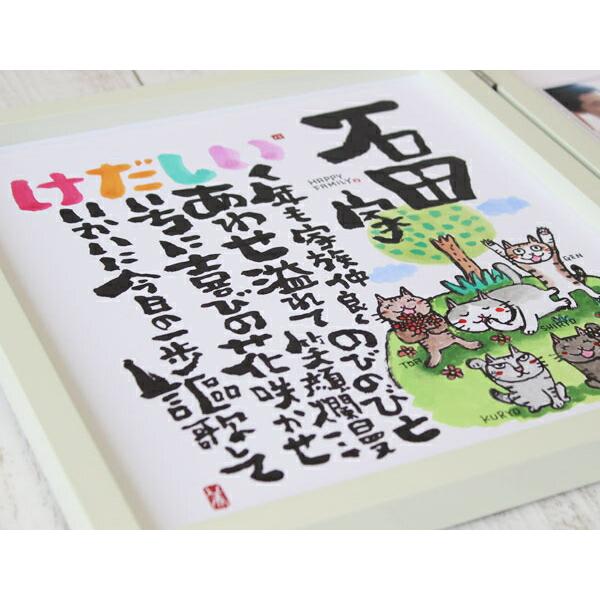 石田家
HAPPY
FAMILY
いく年も家族仲良くのびのびと
しあわせ溢れて笑顔爛漫に
だいちに喜びの花咲かせ
けいかいに今日の一歩謳歌して
GEN
SHIRYO
KURYO